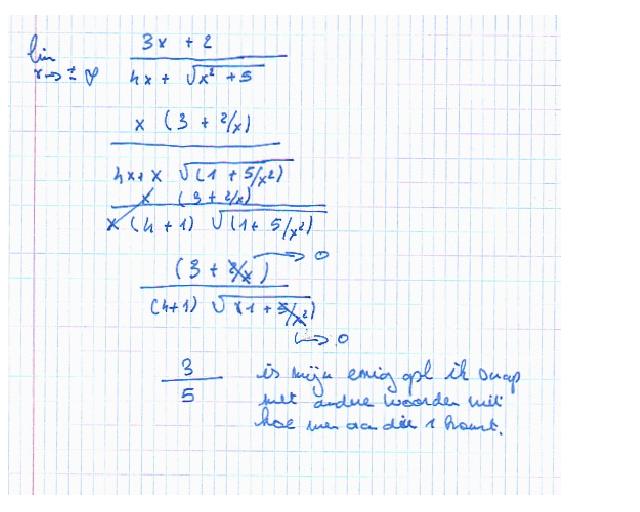 lim x→±∞ (3x + 2) / (4x + √(x² + 5))
x (3 + 2/x) / (4x + x √(1 + 5/x²))
x (3 + 2/x) / (x (4 + 1) √(1 + 5/x²))
(3 + 2/x) → 0
(4+1) √(x1 + 5/x²)
→ 0
3/5
is mijn enig opl ik snap
met andere woorden niet
hoe men aan die 1 komt.